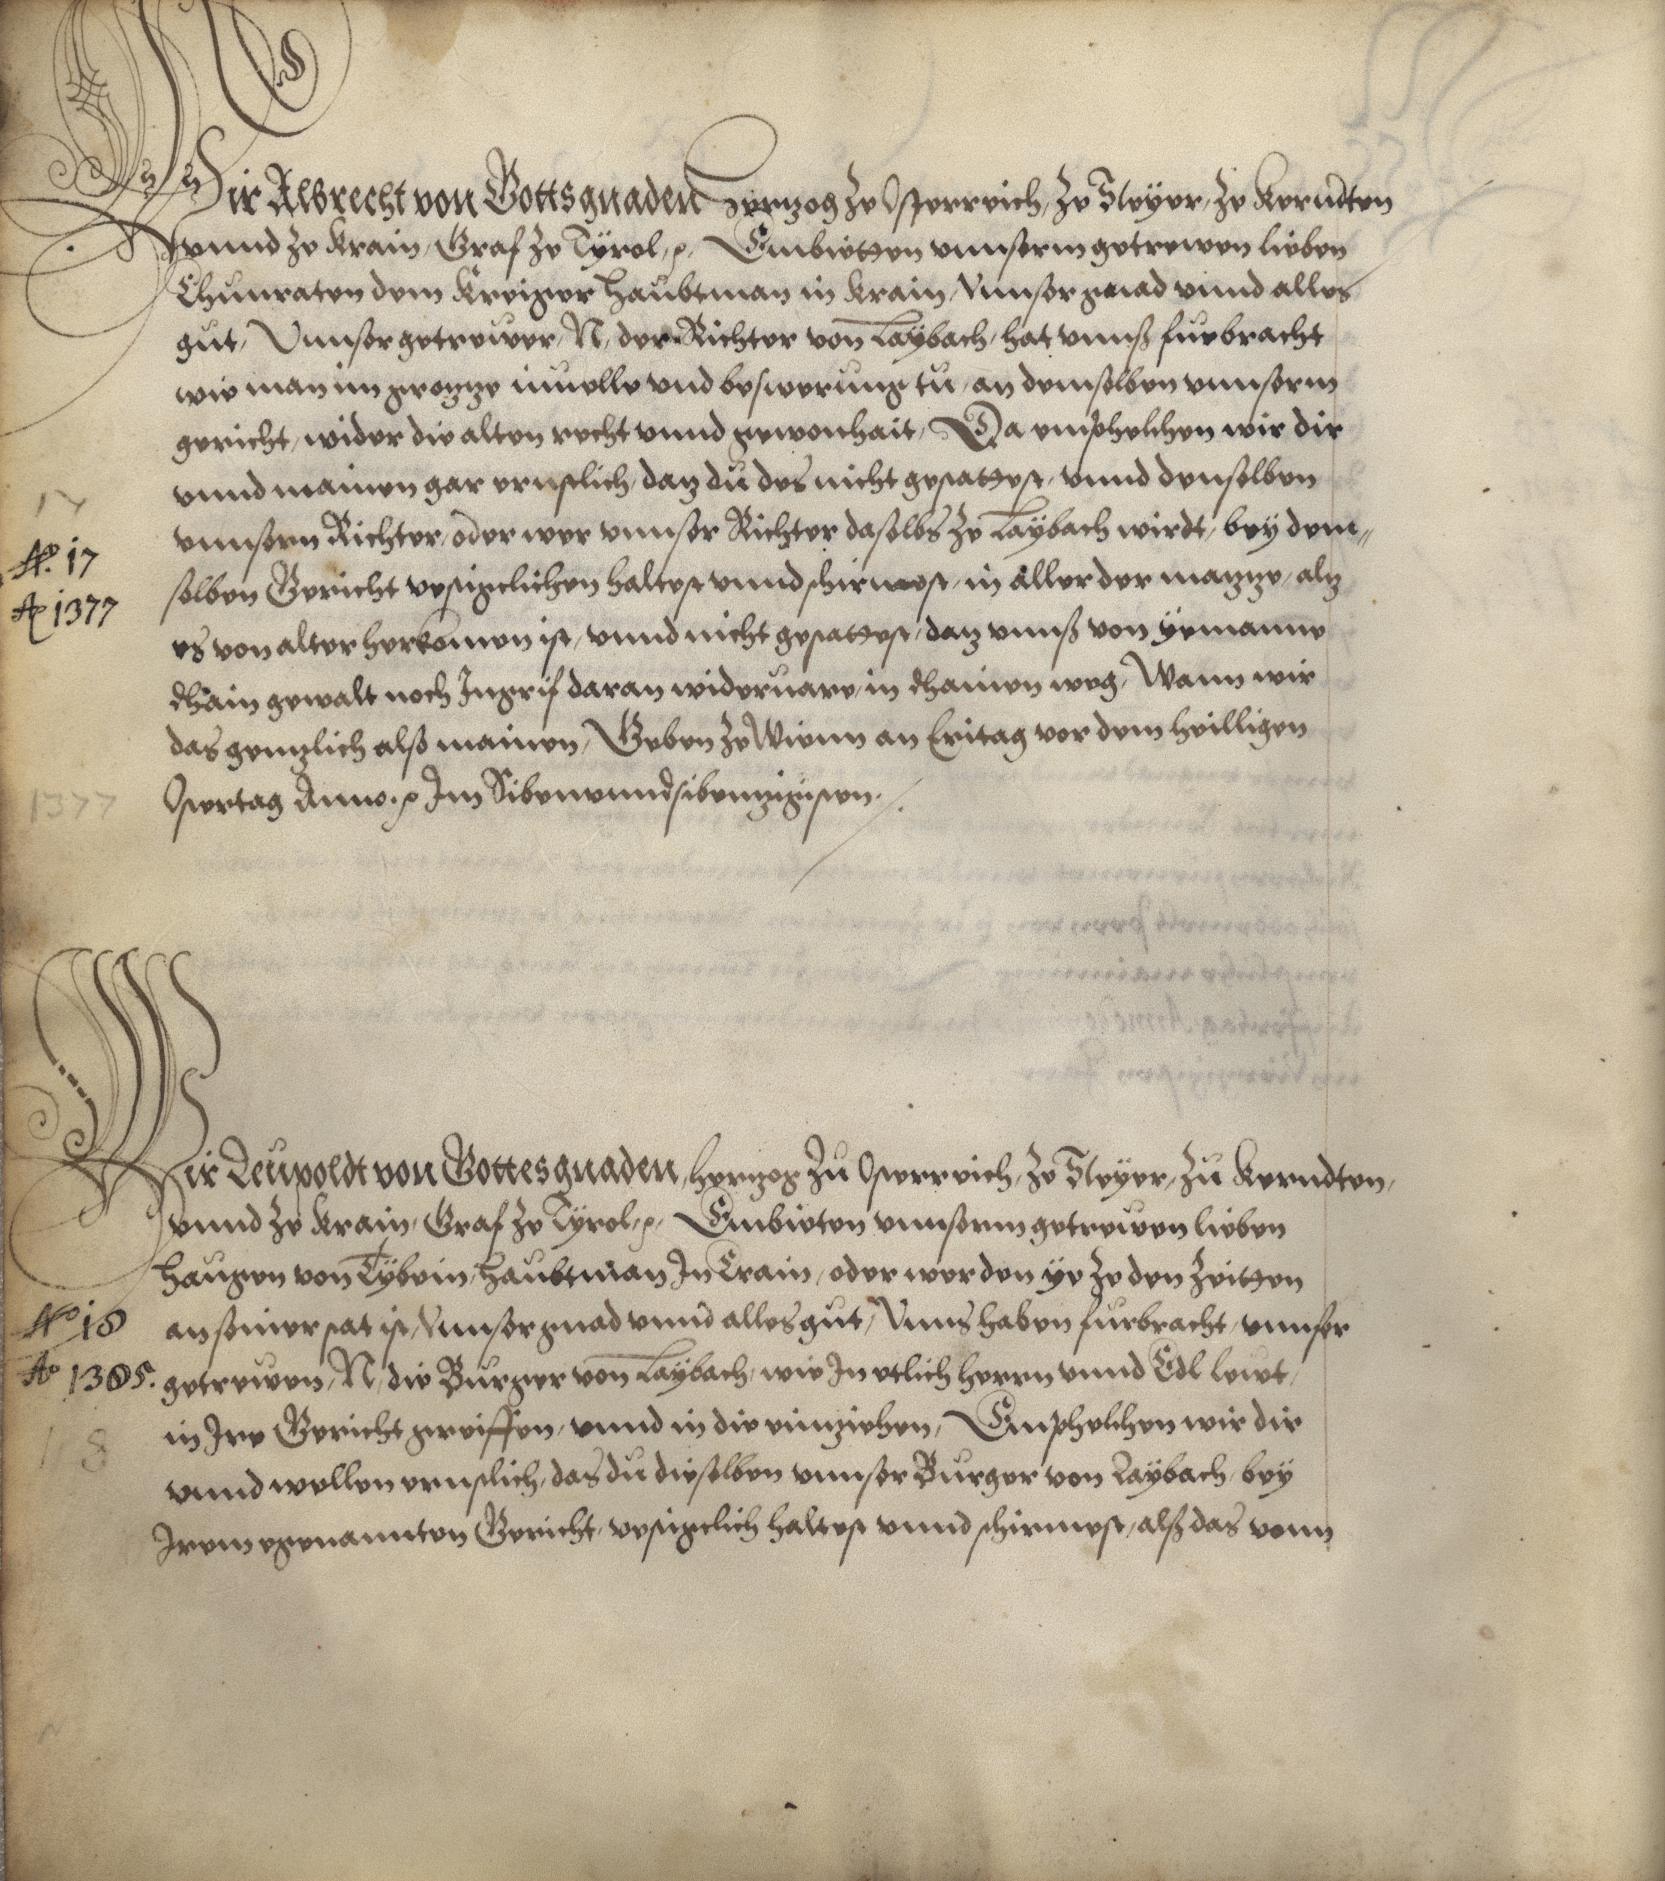 Wir Albrecht von Gottsgnaden Hertzog Ze Osterreich, Ze Steyer, Ze Kerndten
vnnd Ze Krain, Graf Ze Tyrol, p. Embietten vnnserm getrewen lieben
Chunraten dem Kreiger Haubtman in Krain, Vnnser gnad vnnd alles
gut, Vnnser getrewer, N, der Richter von Laybach, hat vnnß furbracht
wie man im grozze inuelle vnd beswerung tu, an demselben vnnserm
gericht, wider die alten recht vnnd gewonhait, Da emphelchen wir dir
vnnd mainen gar ernstlich, daz du des nicht gestattest, vnnd denselben
vnnsern Richter, oder wer vnnser Richter daselbs Ze Laybach wirdt, bey dem„
selben Gericht vestigclichen haltest vnnd schirmest, in aller der mazze, alz
es von alter herkomen ist, vnnd nicht gestattest, daz vnnß von yemanne
dhain gewalt noch Ingrif daran wideruare, in dhainen weg, Wann wir
das genzlich alß mainen, Geben Ze Wienn an Eritag vor dem heilligen
Ostertag Anno. p Im Sibenvnndsibenzigisten.
17
No. 17
Ao 1377
1377
Wir Leupoldt von Gottesgnaden, Hertzog Zu Osterreich, Ze Steyer, Zu Kerndten,
vnnd Ze Krain, Graf Ze Tyrol, p, Embieten vnnserm getrewen lieben
Haugen von Tybein, Haubtman In Crain, oder wer den ye Ze den Zeitten
an seiner stat ist, Vnnser gnad vnnd alles gut, Vnns haben furbracht, vnnser
getrewen, N, die Burger von Laybach, wie In etlich Herrn vnnd Edl lewt,
in Ire Gericht greiffen, vnnd in die einziehen, Emphelchen wir dir
vnnd wellen ernstlich, das du dieselben vnnser Burger von Laybach, bey
Irem egenannten Gericht, vestigclich haltest vnnd schirmest, alß das vonn
No 18
Ao 1385.
18